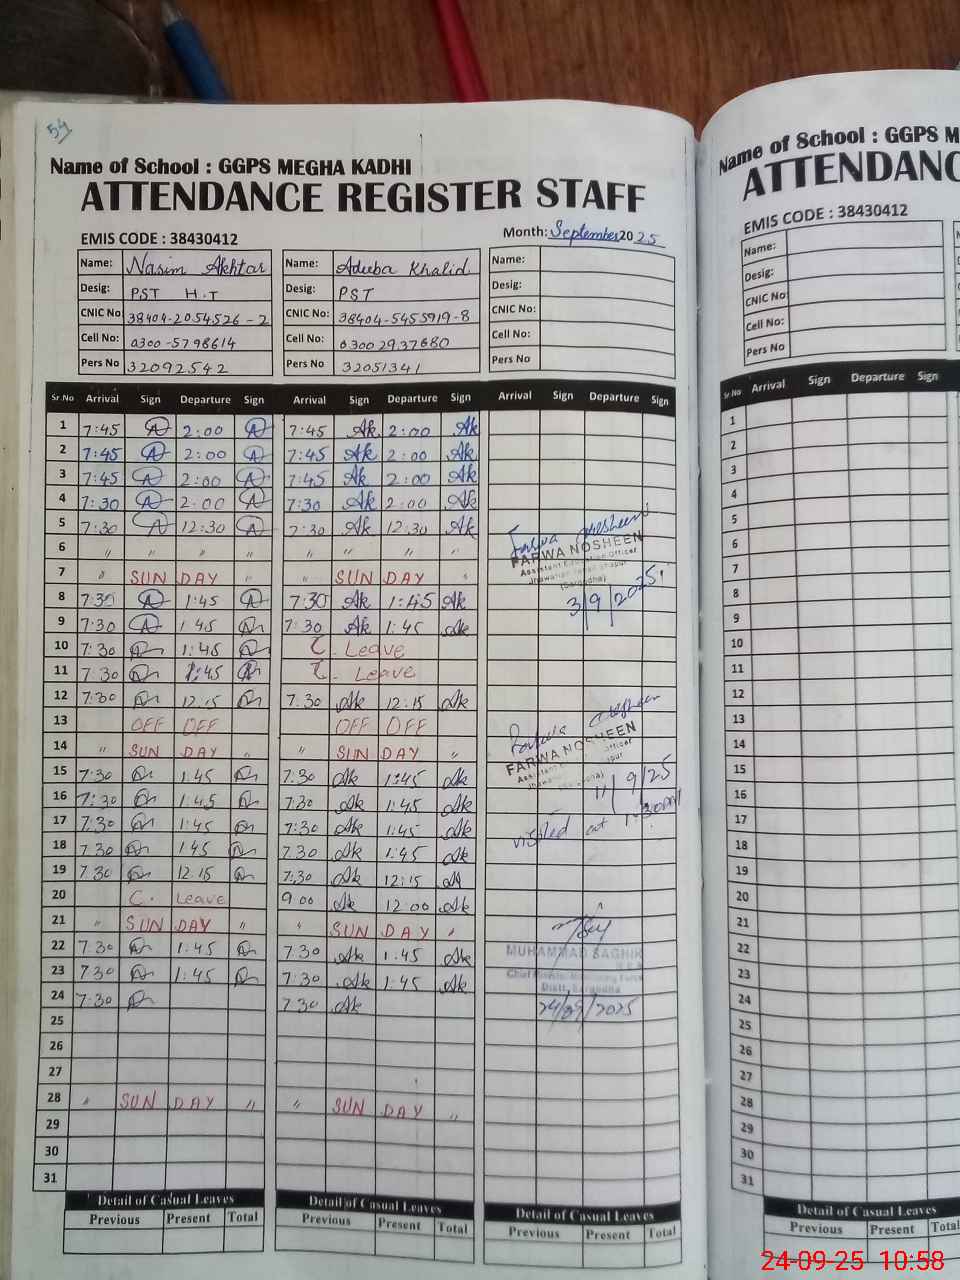 54
Name of School : GGPS MEGHA KADHI
ATTENDANCE REGISTER STAFF
EMIS CODE : 38430412
Month: September 2025
Name: Nasim Akhtar Name: Adeeba Khalid Name:
Desig: PST H.T Desig: PST Desig:
CNIC No: 38404-2054526-2 CNIC No: 38404-5455919-8 CNIC No:
Cell No: 0300-5798614 Cell No: 03002937680 Cell No:
Pers No 32092542 Pers No 32051341 Pers No
Sr.No Arrival Sign Departure Sign Arrival Sign Departure Sign Arrival Sign Departure Sign
1 7:45 A 2:00 A 7:45 Ak 2:00 Ak
2 7:45 A 2:00 A 7:45 Ak 2:00 Ak
3 7:45 A 2:00 A 7:45 Ak 2:00 Ak
4 7:30 A 2:00 A 7:30 Ak 2:00 Ak
5 7:30 A 12:30 A 7:30 Ak 12:30 Ak
6 " " " " " " " "
7 " SUN DAY " " SUN DAY "
8 7:30 A 1:45 A 7:30 Ak 1:45 Ak
9 7:30 A 1:45 7:30 Ak 1:45 Ak
10 7:30 1:45 C. Leave
11 7:30 1:45 C. Leave
12 7:30 12.15 7:30 Ak 12:15 Ak
13 OFF OFF OFF OFF
14 " SUN DAY " " SUN DAY "
15 7:30 1:45 7:30 Ak 1:45 Ak
16 7:30 1:45 7:30 Ak 1:45 Ak
17 7:30 1:45 7:30 Ak 1:45 Ak
18 7.30 1.45 7.30 Ak 1:45 Ak
19 7.30 12.15 7:30 Ak 12:15 Ak
20 C. Leave 9 00 Ak 12 00 Ak
21 " SUN DAY " " SUN DAY "
22 7.30 1:45 7.30 Ak 1:45 Ak
23 7.30 1:45 7:30 Ak 1:45 Ak
24 7:30 7.30 Ak
25
26
27
28 " SUN DAY " " SUN DAY "
29
30
31
FARWA NOSHEEN
Assistant Education Officer
(Sargodha)
3/9/2025
FARWA NOSHEEN
11/9/25
visited at 1:30PM
MUHAMMAD SAGHIR
Distt. Sargodha
24/09/2025
Detail of Casual Leaves Detail of Casual Leaves Detail of Casual Leaves
Previous Present Total Previous Present Total Previous Present Total
Name of School : GGPS M
ATTENDANC
EMIS CODE : 38430412
Name:
Desig:
CNIC No:
Cell No:
Pers No
Sr.No Arrival Sign Departure Sign
1
2
3
4
5
6
7
8
9
10
11
12
13
14
15
16
17
18
19
20
21
22
23
24
25
26
27
28
29
30
31
Detail of Casual Leaves
Previous Present Total
24-09-25 10:58